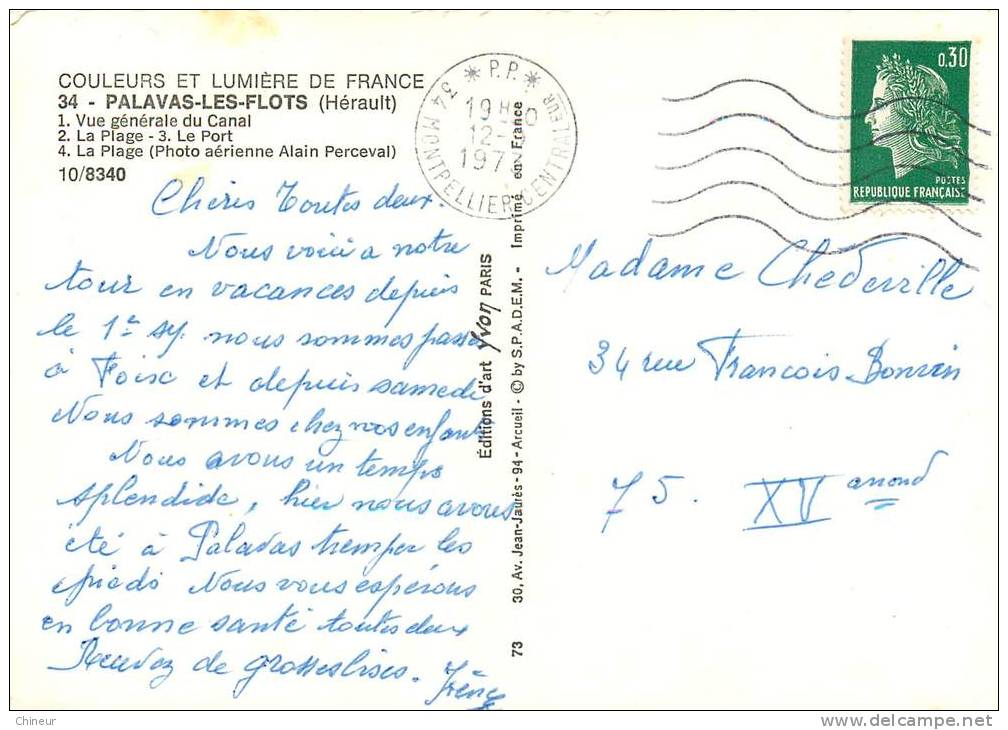 COULEURS ET LUMIÈRE DE FRANCE
34 - PALAVAS-LES-FLOTS (Hérault)
1. Vue générale du Canal
2. La Plage - 3. Le Port
4. La Plage (Photo aérienne Alain Perceval)
10/8340
Chéries toutes deux.
Nous voici a notre
tour en vacances depuis
le 1er nous sommes passé
à et depuis samedi
Nous sommes chez nos enfants
Nous avons un temps
splendide, hier nous avons
été à Palavas tremper les
pieds Nous vous espérons
en bonne santé toutes deux
Recevez de grosses bises.
Irène
P.P.
34 MONTPELLIER CENTRALISATEUR
19H
12-
197
Éditions d'art Yvon PARIS
73 30, Av. Jean-Jaurès - 94 - Arcueil - © by S.P.A.D.E.M. - Imprimé en France
0,30
POSTES
REPUBLIQUE FRANÇAISE
Madame Chedeville
34 rue Francois Bonvin
75. XV arrond
Chineur
www.delcampe.net